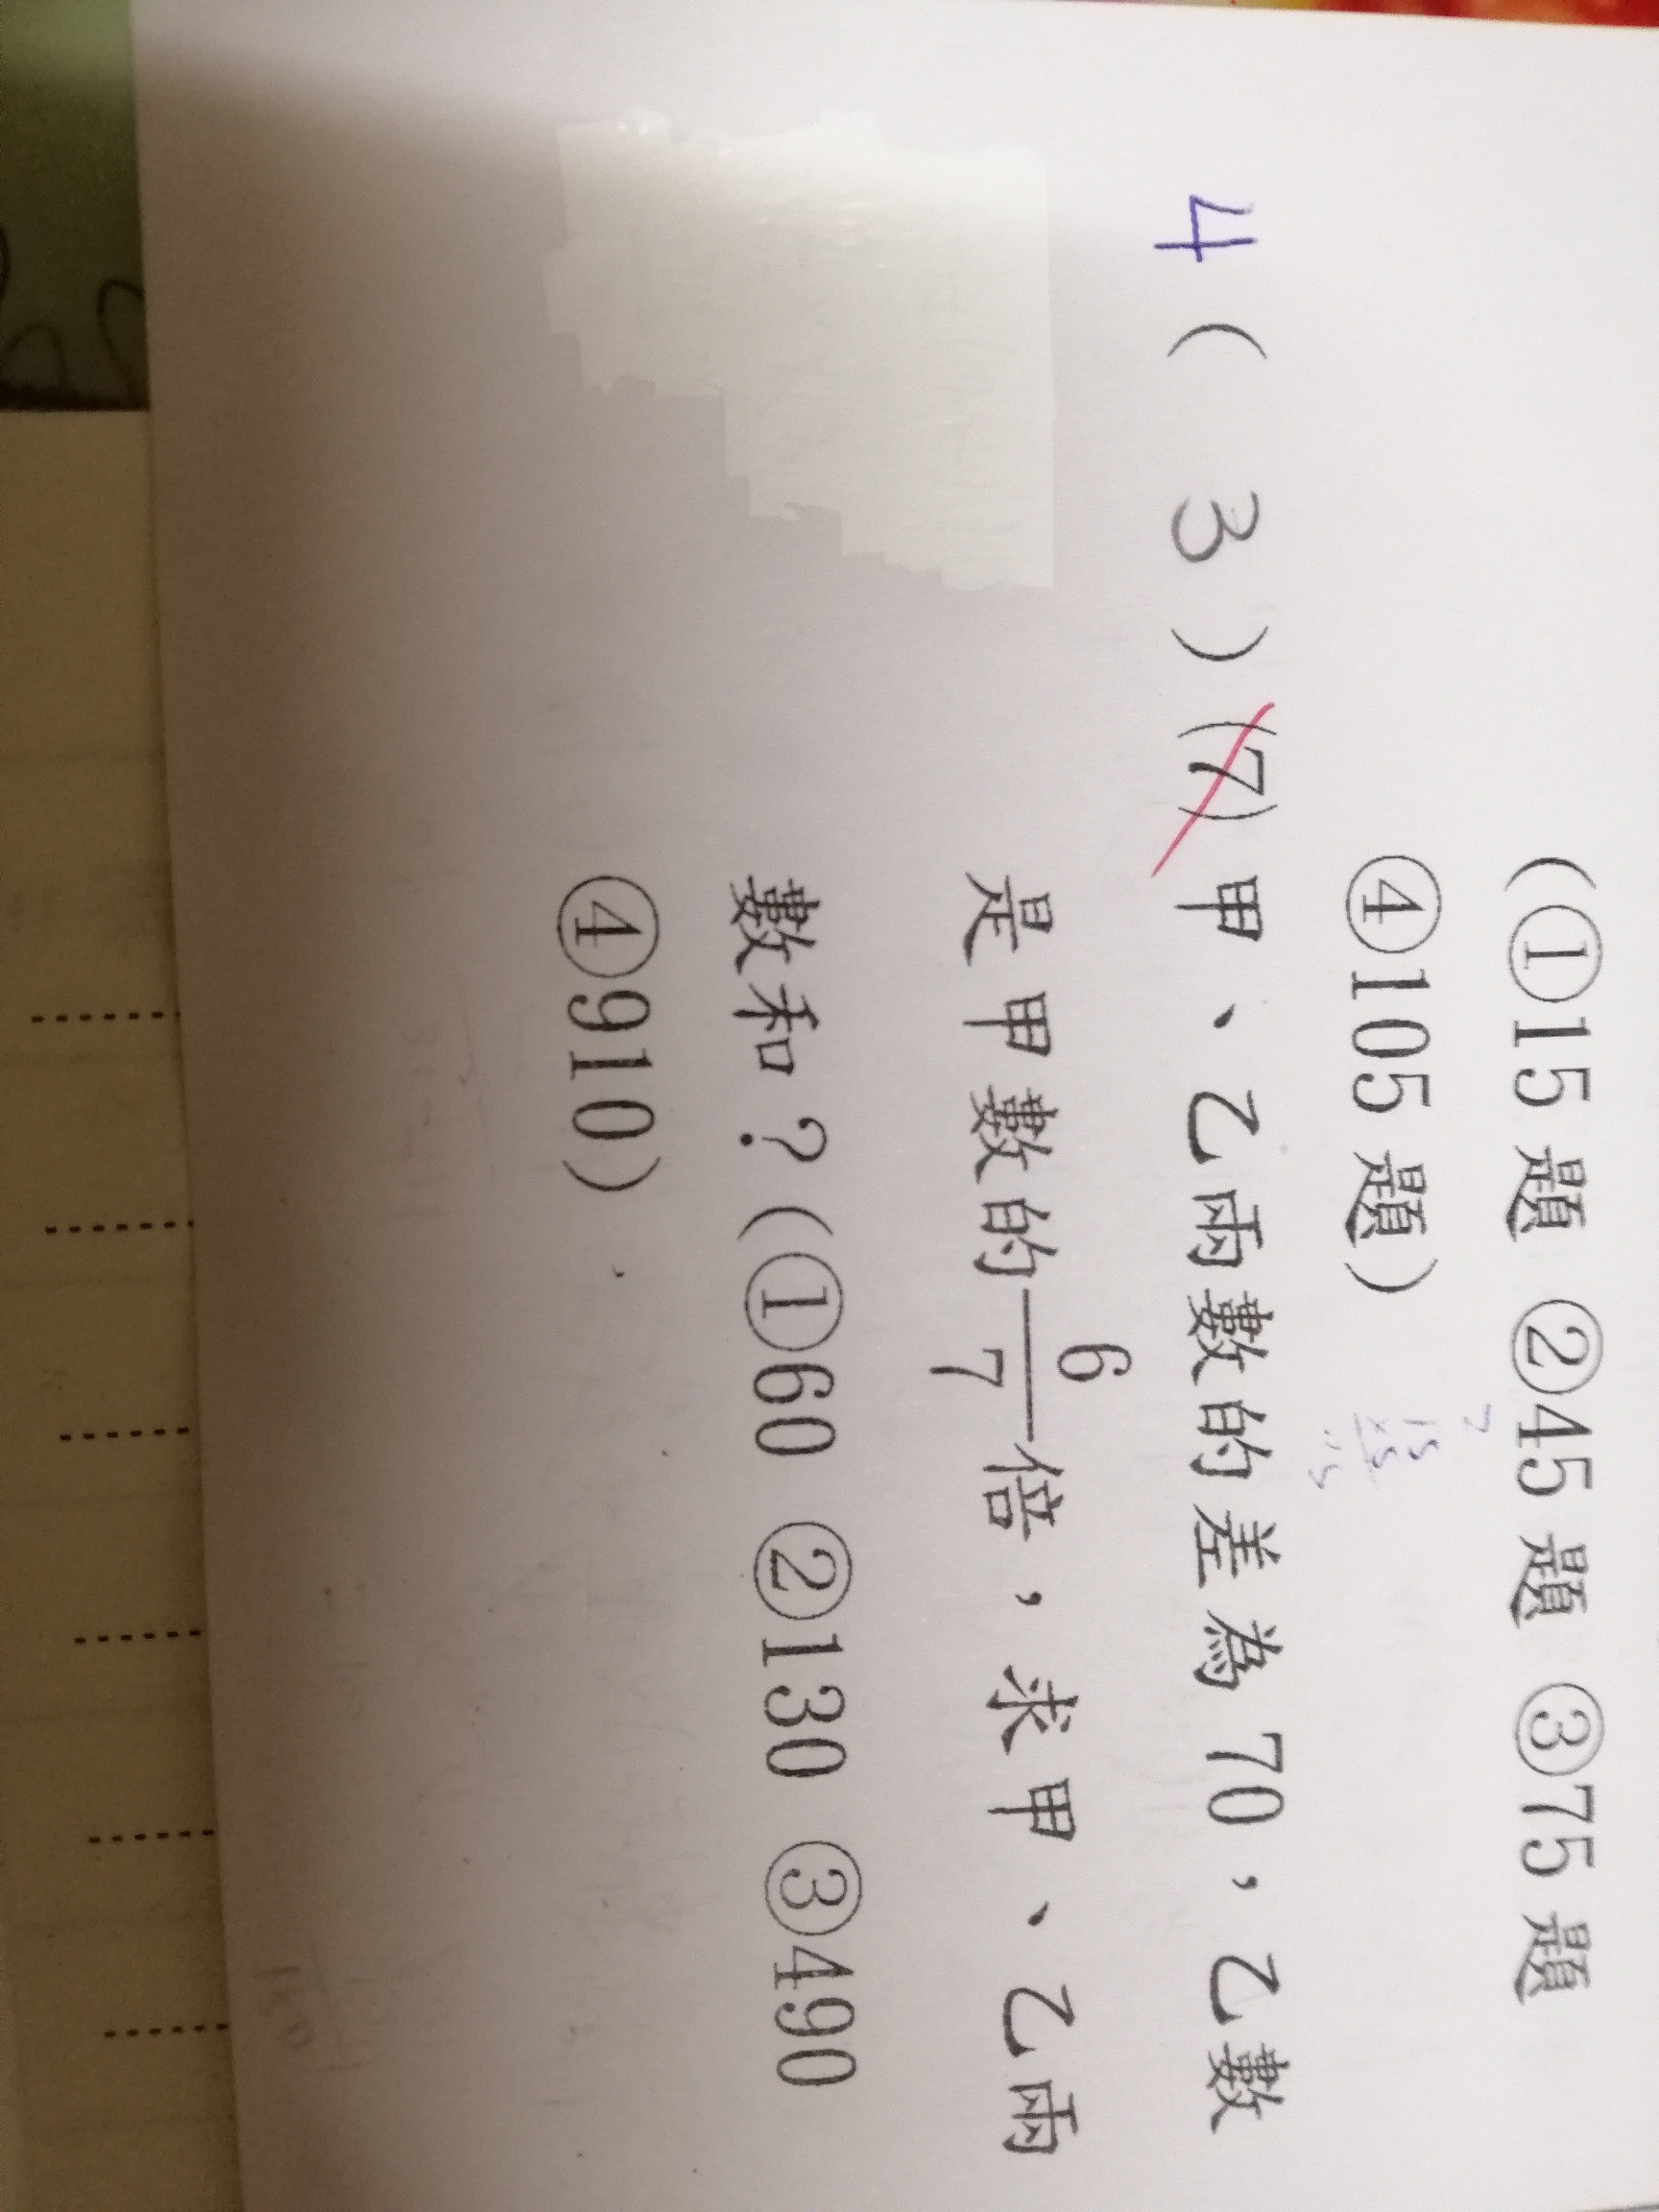 (①15 題 ②45 題 ③75 題
④105 題)
15
×5
4 ( 3 ) (7) 甲、乙兩數的差為 70，乙數
是甲數的 6/7 倍，求甲、乙兩
數和？(①60 ②130 ③490
④910)